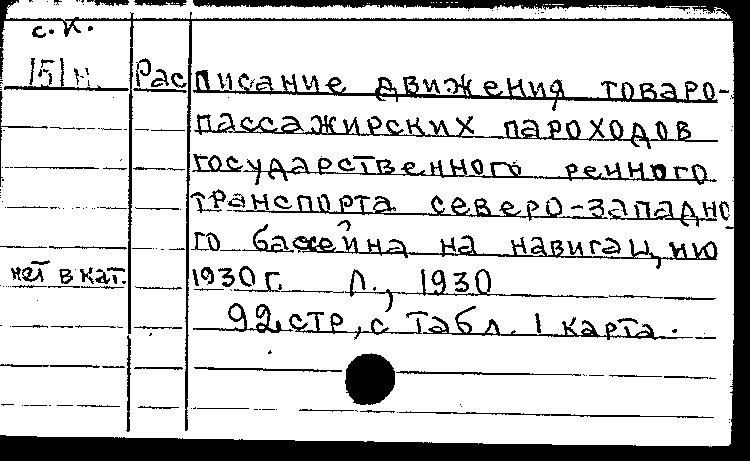 с.к.
151н. Расписание движения товаро-
пассажирских пароходов
государственного речного
транспорта северо-западно
го бассейна на навигацию
нет в кат. 1930 г. Л., 1930
92 стр, с табл. 1 карта.